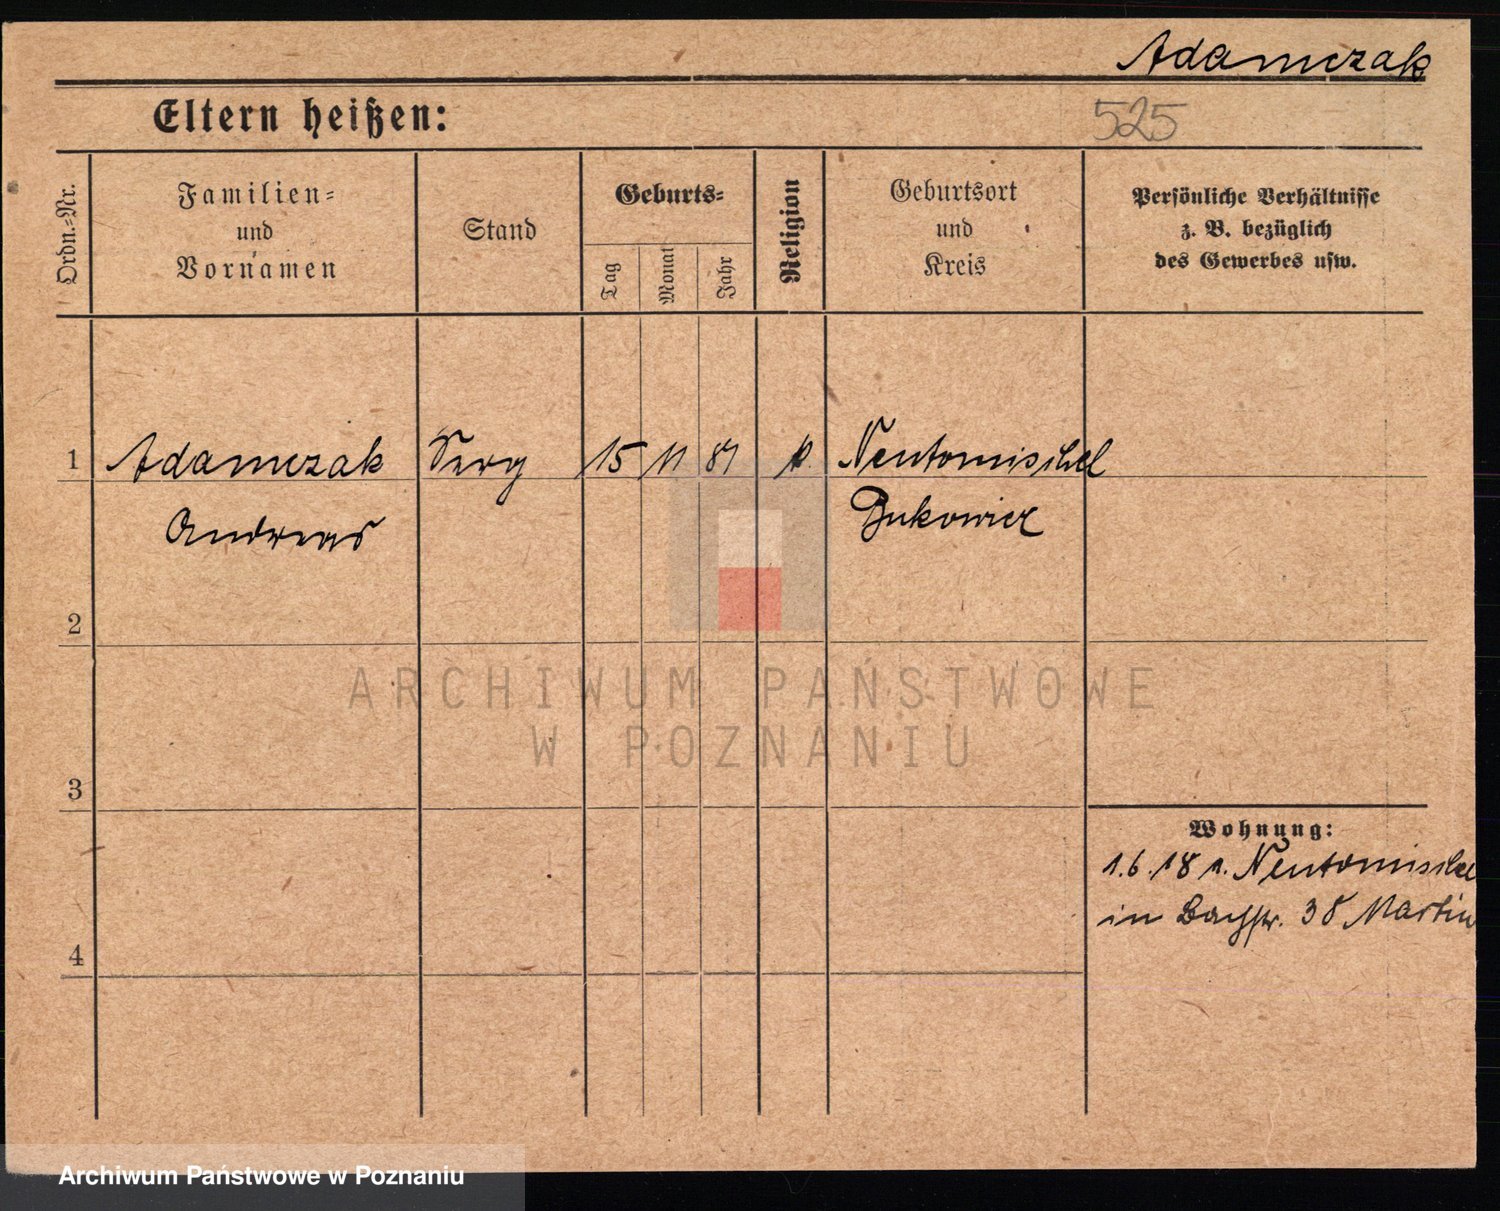 Adamczak
Eltern heißen:
525
Ordn.-Nr.
Familien-
und
Vornamen
Stand
Geburts-
Tag
Monat
Jahr
Religion
Geburtsort
und
Kreis
Persönliche Verhältnisse
z. B. bezüglich
des Gewerbes usw.
1
Adamczak
Serg
15
11
81
k.
Neutomischel
Andreas
Bukowiez
2
ARCHIWUM PAŃSTWOWE
W POZNANIU
3
Wohnung:
1.6.18 a. Neutomischel
in 38 Martin
4
Archiwum Państwowe w Poznaniu